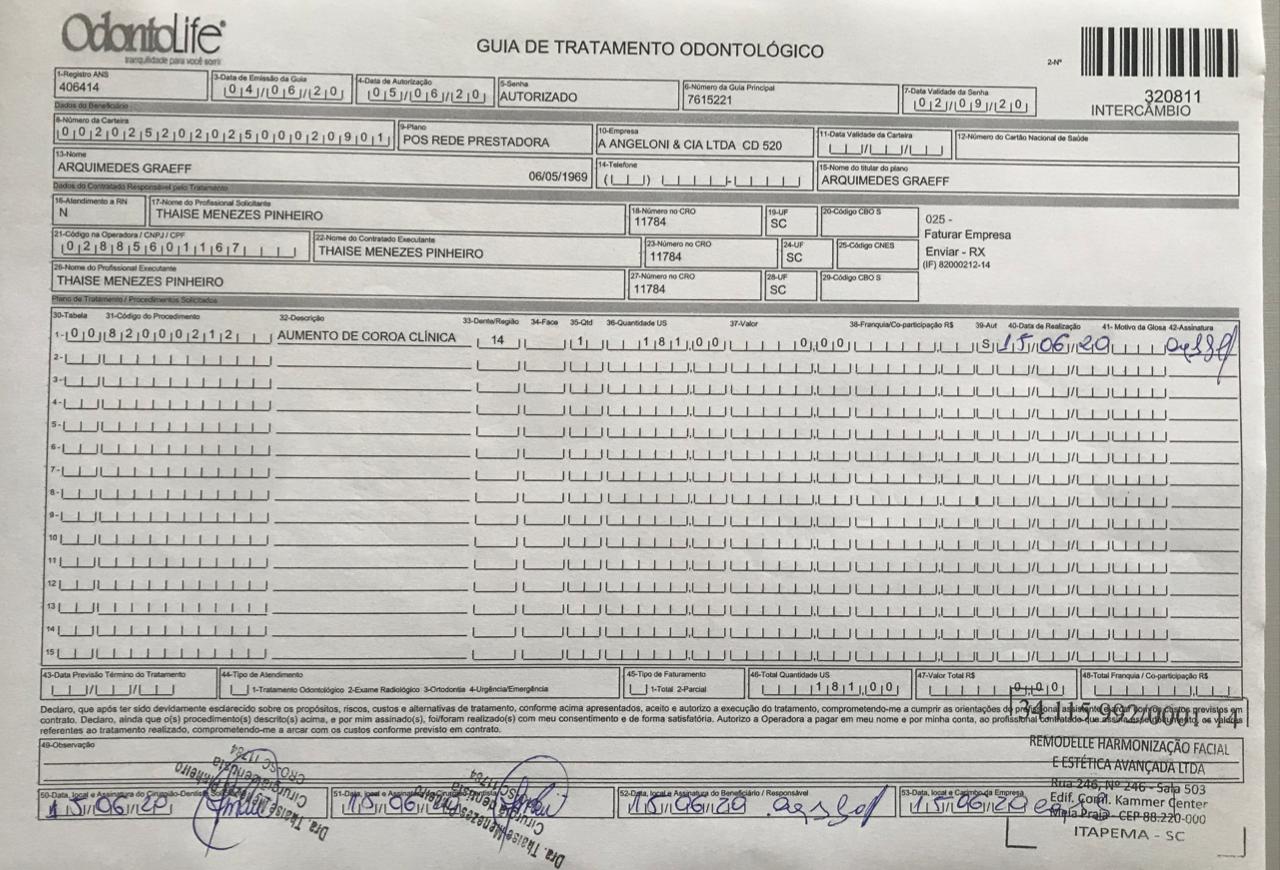 OdontoLife
tranquilidade para você sorrir
GUIA DE TRATAMENTO ODONTOLÓGICO
2-Nº
320811
INTERCÂMBIO
1-Registro ANS
406414
3-Data de Emissão da Guia
04/06/20
4-Data de Autorização
05/06/20
5-Senha
AUTORIZADO
6-Número da Guia Principal
7615221
7-Data Validade da Senha
02/09/20
Dados do Beneficiário
8-Número da Carteira
00202520202500020901
9-Plano
POS REDE PRESTADORA
10-Empresa
A ANGELONI & CIA LTDA CD 520
11-Data Validade da Carteira
12-Número do Cartão Nacional de Saúde
13-Nome
ARQUIMEDES GRAEFF 06/05/1969
14-Telefone
15-Nome do titular do plano
ARQUIMEDES GRAEFF
Dados do Contratado Responsável pelo Tratamento
16-Atendimento a RN
N
17-Nome do Profissional Solicitante
THAISE MENEZES PINHEIRO
18-Número no CRO
11784
19-UF
SC
20-Código CBO S
025 -
Faturar Empresa
Enviar - RX
(IF) 82000212-14
21-Código na Operadora / CNPJ / CPF
02885601167
22-Nome do Contratado Executante
THAISE MENEZES PINHEIRO
23-Número no CRO
11784
24-UF
SC
25-Código CNES
26-Nome do Profissional Executante
THAISE MENEZES PINHEIRO
27-Número no CRO
11784
28-UF
SC
29-Código CBO S
Plano de Tratamento / Procedimentos Solicitados
30-Tabela 31-Código do Procedimento 32-Descrição 33-Dente/Região 34-Face 35-Qtd 36-Quantidade US 37-Valor 38-Franquia/Co-participação R$ 39-Aut 40-Data de Realização 41- Motivo da Glosa 42-Assinatura
1- 00 82000212 AUMENTO DE COROA CLÍNICA 14 1 181,00 0,00 S 15/06/20
2-
3-
4-
5-
6-
7-
8-
9-
10
11
12
13
14
15
43-Data Previsão Término do Tratamento
44-Tipo de Atendimento
1-Tratamento Odontológico 2-Exame Radiológico 3-Ortodontia 4-Urgência/Emergência
45-Tipo de Faturamento
1-Total 2-Parcial
46-Total Quantidade US
181,00
47-Valor Total R$
0,00
48-Total Franquia / Co-participação R$
Declaro, que após ter sido devidamente esclarecido sobre os propósitos, riscos, custos e alternativas de tratamento, conforme acima apresentados, aceito e autorizo a execução do tratamento, comprometendo-me a cumprir as orientações do profissional assistente e arcar com os custos previstos em
contrato. Declaro, ainda que o(s) procedimento(s) descrito(s) acima, e por mim assinado(s), foi/foram realizado(s) com meu consentimento e de forma satisfatória. Autorizo a Operadora a pagar em meu nome e por minha conta, ao profissional contratado que assina esse documento, os valores
referentes ao tratamento realizado, comprometendo-me a arcar com os custos conforme previsto em contrato.
49-Observação
50-Data, local e Assinatura do Cirurgião-Dentista Solicitante
15/06/20
Dra. Thaise Menezes Pinheiro
Cirurgiã dentista
CRO-SC 11784
51-Data, local e Assinatura do Cirurgião-Dentista
15/06/20
Dra. Thaise Menezes Pinheiro
Cirurgiã dentista
CRO-SC 11784
52-Data, local e Assinatura do Beneficiário / Responsável
15/06/20
53-Data, local e Carimbo da Empresa
15/06/20
REMODELLE HARMONIZAÇÃO FACIAL
E ESTÉTICA AVANÇADA LTDA
Rua 246, Nº 246 - Sala 503
Edif. Coml. Kammer Center
Meia Praia - CEP 88.220-000
ITAPEMA - SC